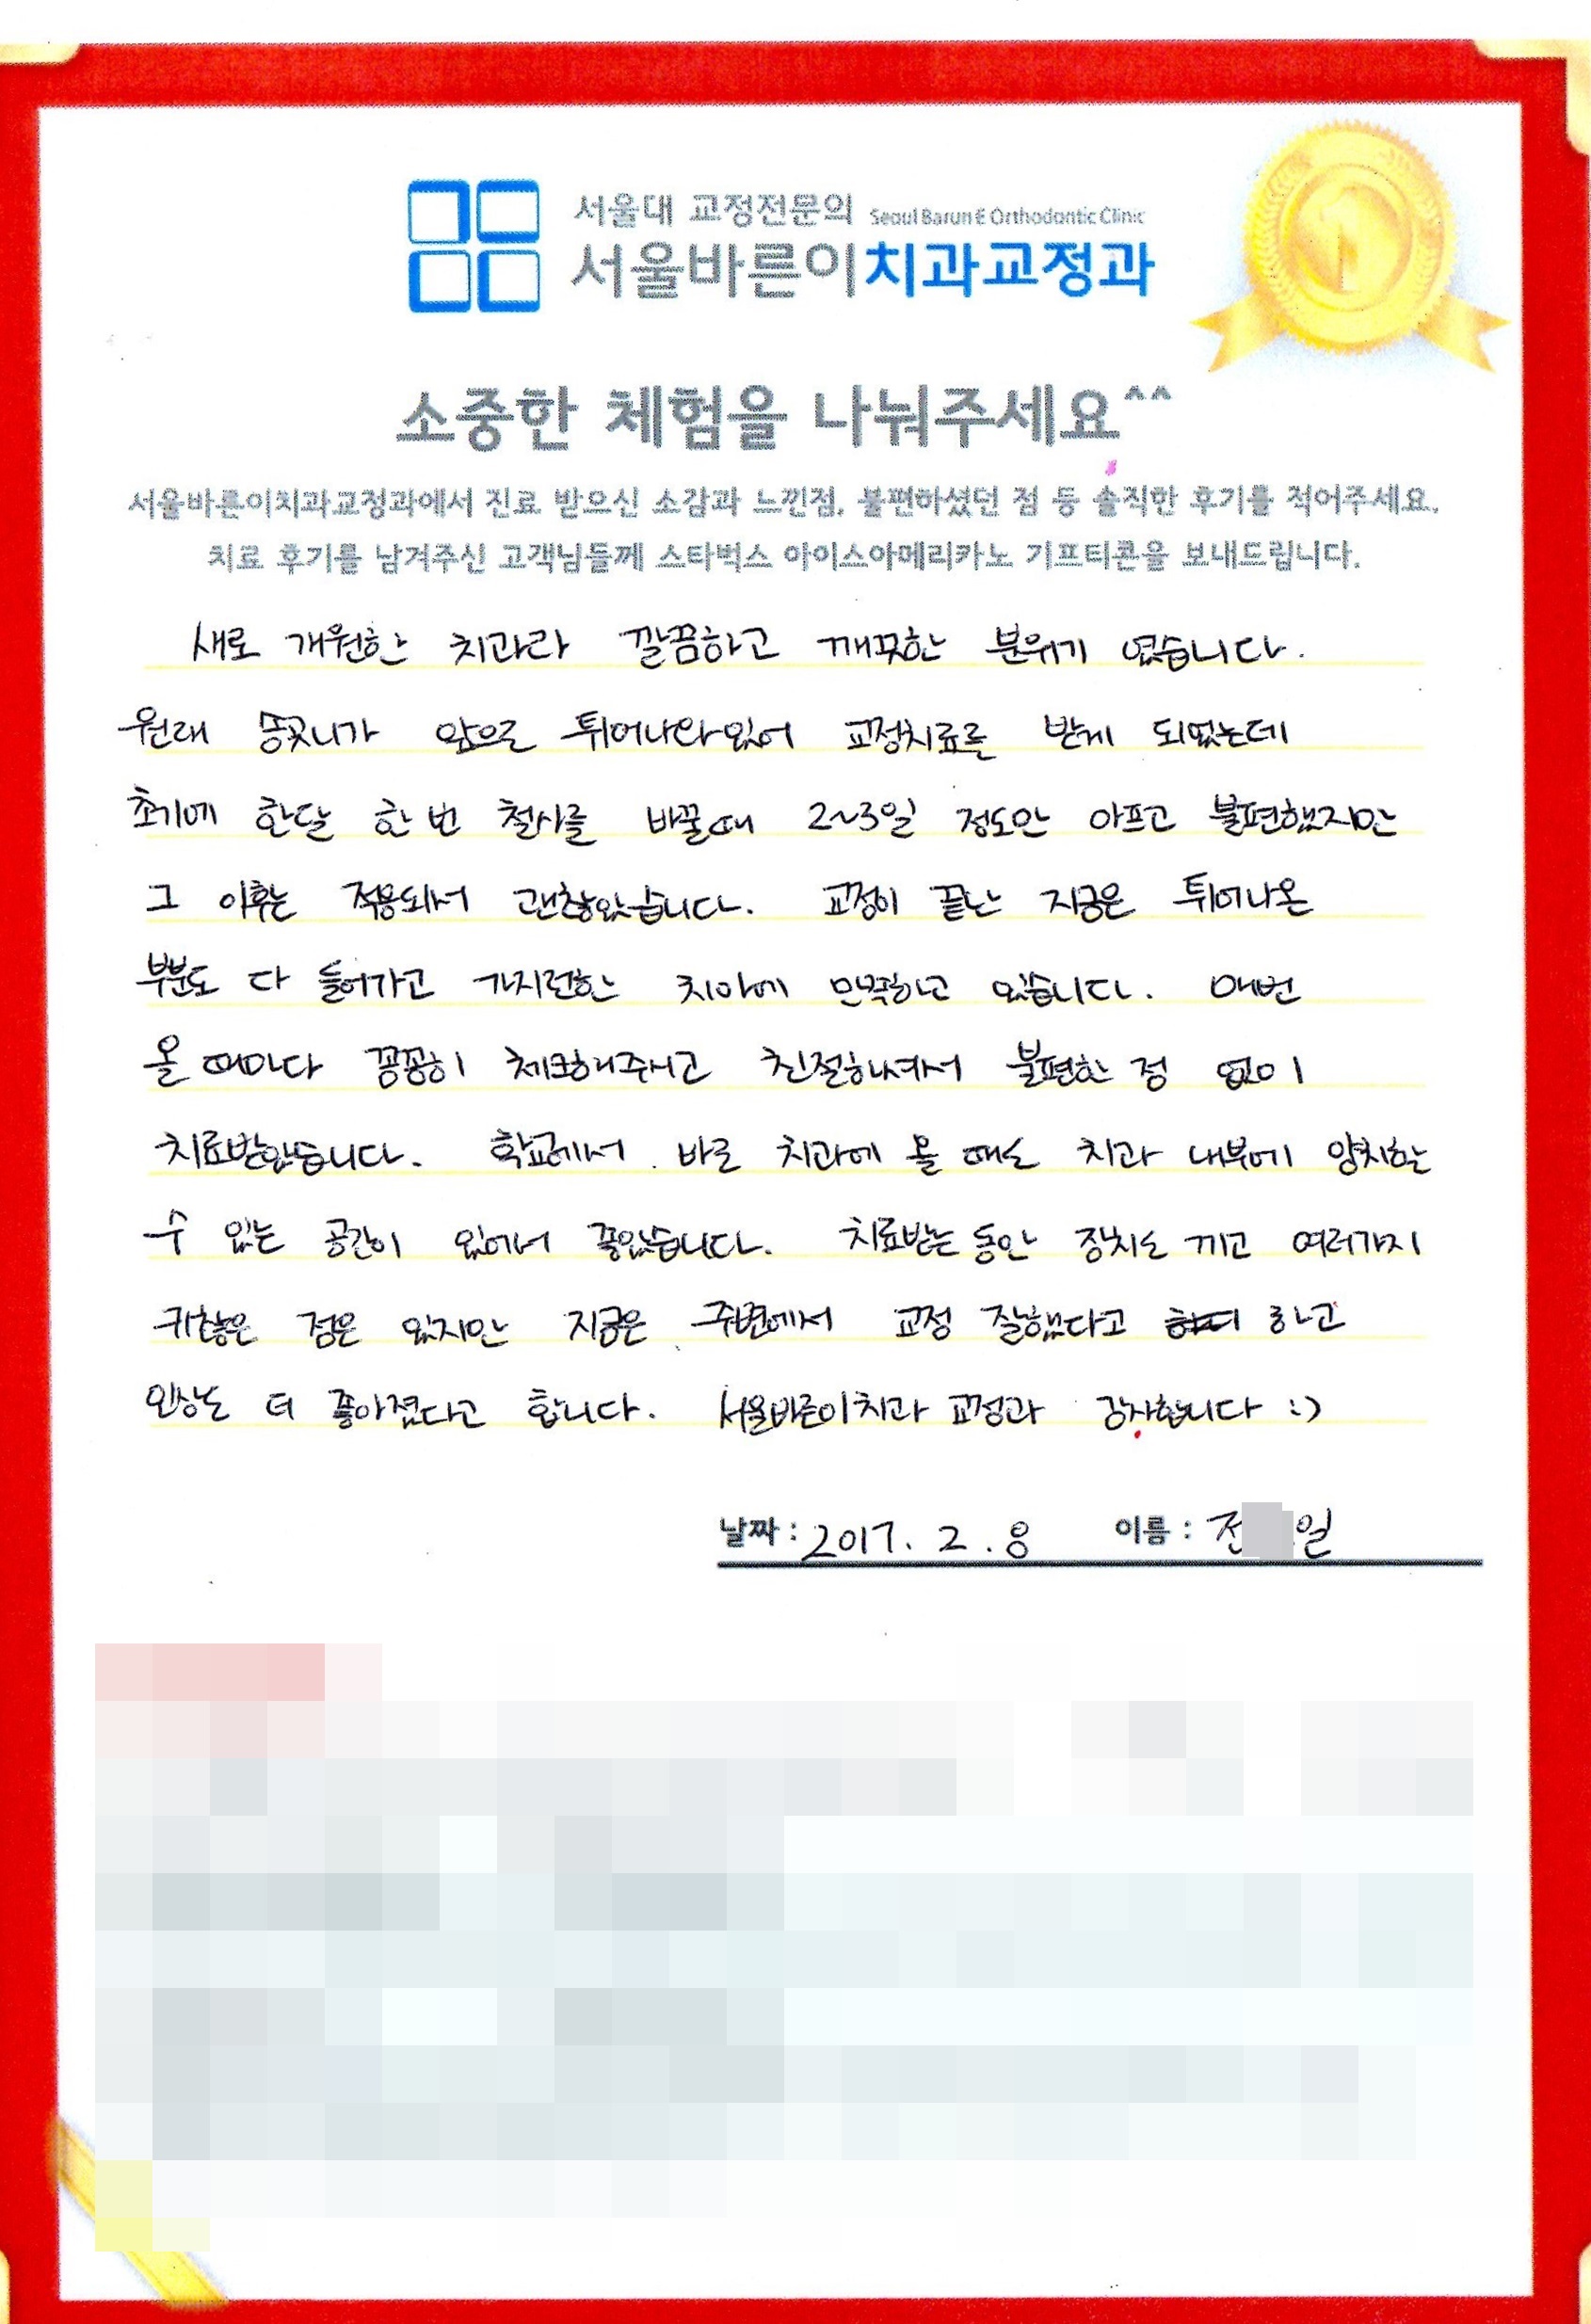 서울대 교정전문의 Seoul Barun E Orthodontic Clinic
서울바른이치과교정과
소중한 체험을 나눠주세요^^
서울바른이치과교정과에서 진료 받으신 소감과 느낀점, 불편하셨던 점 등 솔직한 후기를 적어주세요.
치료 후기를 남겨주신 고객님들께 스타벅스 아이스아메리카노 기프티콘을 보내드립니다.
새로 개원한 치과라 깔끔하고 깨끗한 분위기 였습니다.
원래 송곳니가 앞으로 튀어나와있어 교정치료를 받게 되었는데
초기에 한달 한 번 철사를 바꿀때 2~3일 정도만 아프고 불편했지만
그 이후는 적응되서 괜찮았습니다. 교정이 끝난 지금은 튀어나온
부분도 다 들어가고 가지런한 치아에 만족하고 있습니다. 매번
올 때마다 꼼꼼히 체크해주시고 친절하셔서 불편한 점 없이
치료받았습니다. 학교에서 바로 치과에 올 때도 치과 내부에 양치할
수 있는 공간이 있어서 좋았습니다. 치료받는 동안 장치도 끼고 여러가지
귀찮은 점은 있지만 지금은 주변에서 교정 잘했다고 하고
인상도 더 좋아졌다고 합니다. 서울바른이치과 교정과 감사합니다 :)
날짜 : 2017. 2. 8 이름 : 전 일